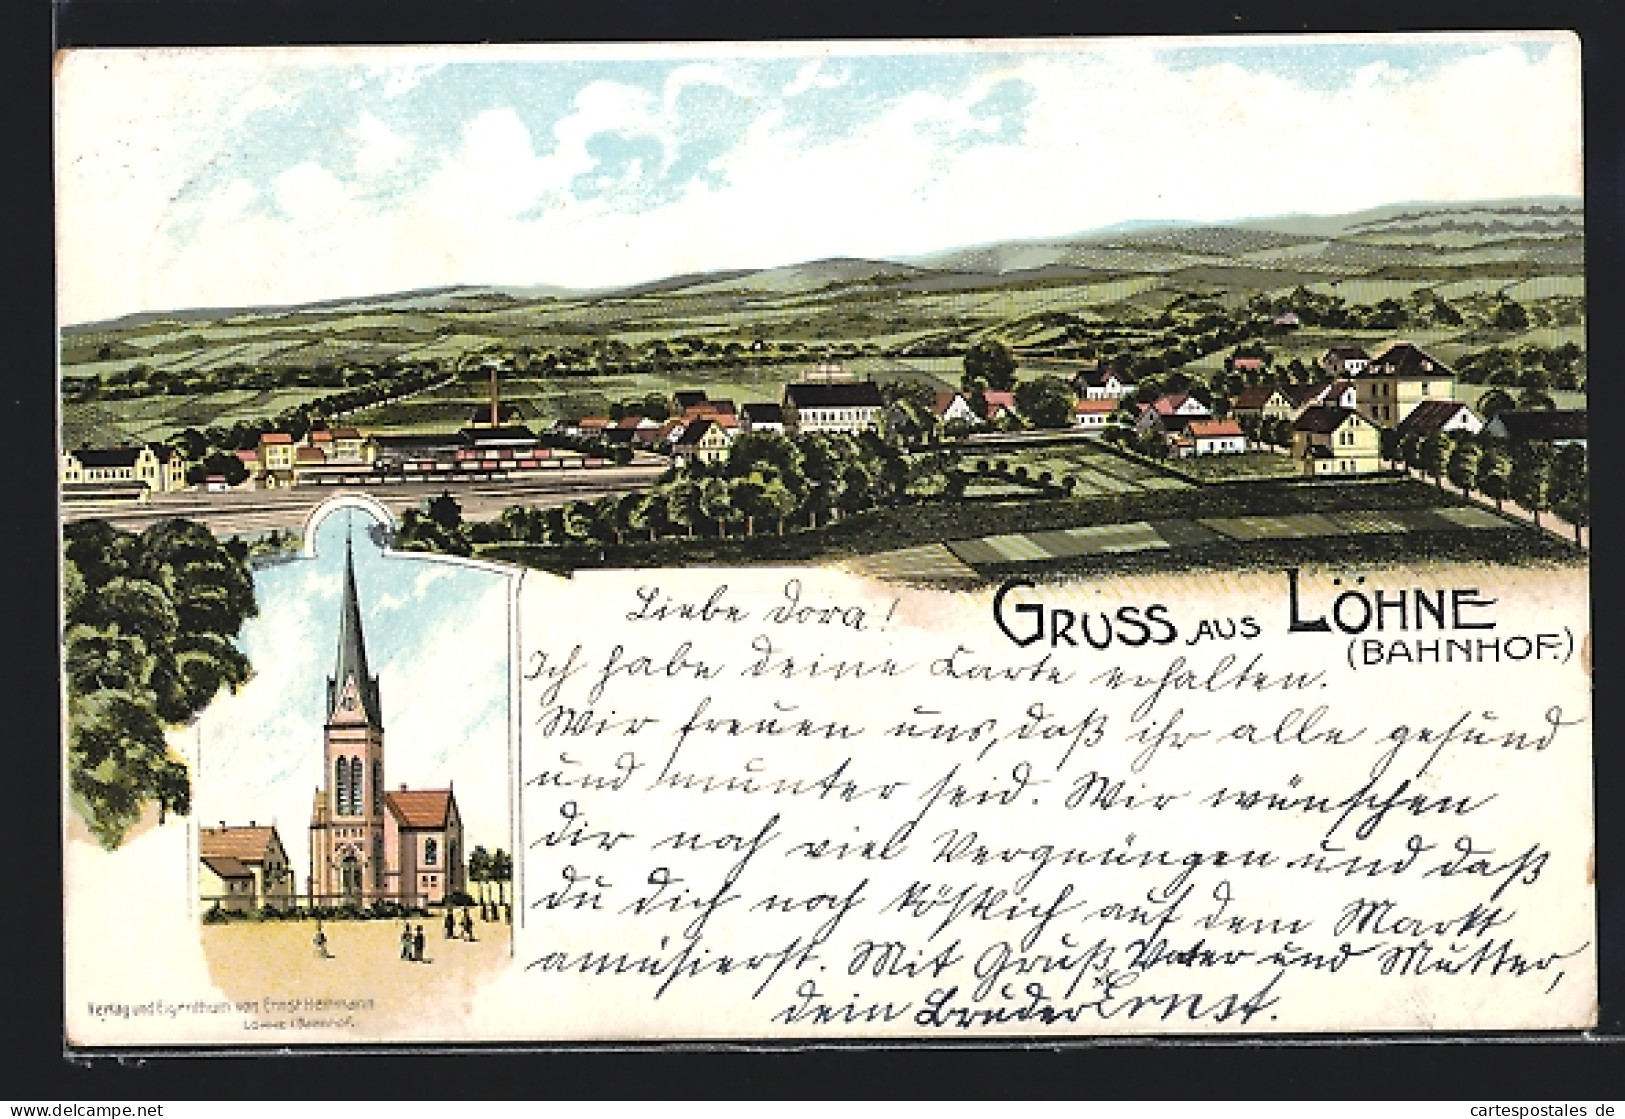 GRUSS AUS LÖHNE
(BAHNHOF.)
Liebe Dora!
Ich habe deine Karte erhalten.
Wir freuen uns, daß ihr alle gesund
und munter seid. Wir wünschen
dir noch viel Vergnügen und daß
du dich noch köstlich auf dem Markt
amüsierst. Mit Gruß Vater und Mutter,
dein Bruder Ernst.
Verlag und Eigenthum von Ernst Heitmann
LÖHNE (BAHNHOF.
cartespostales de